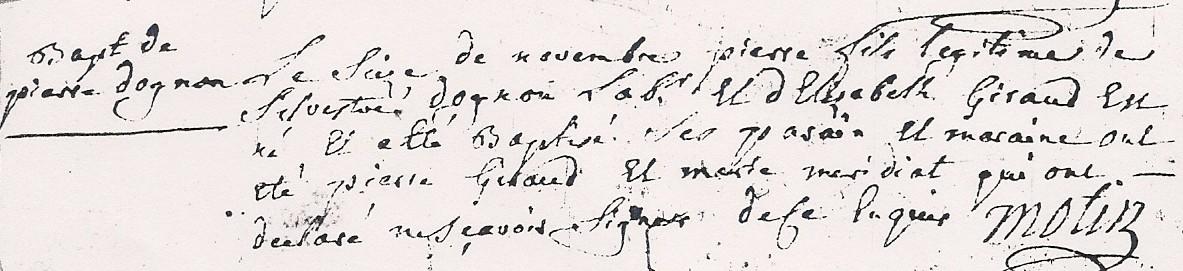 Bapt de
pierre dognon
Le Sise de novembre pierre fils legitime de
Silvestre dognon Lab.r Et d'Elisabeth Giraud Est
né Et a été Baptisé. Ses parain Et maraine ont
été pierre Giraud Et marie meridiat qui ont —
declaré ne sçavoir signer de ce Enquis Motin